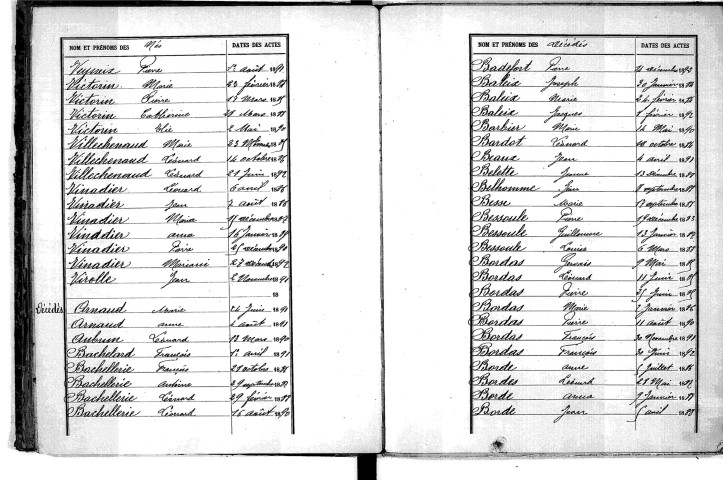 NOM ET PRÉNOMS DES Nés DATES DES ACTES
Pierre août
Victorin Marie 23 février 18
Victorin Pierre mars 18
Victorin Catherine 28 Mars 18
Victorin Elie 2 Mai 1890
Villechenaud Marie 23 18
Villechenaud Léonard 14 octobre 18
Villechenaud Léonard 21 Juin 1892
Vinadier Léonard 6 avril 1886
Vinadier Jean 2 août 18
Vinadier Maria décembre 18
Vinadier anna 16 Janvier 1889
Vinadier Pierre 25 décembre 1890
Vinadier 27 1892
Virolle Jean 2 Novembre 1891
18
Décédés Arnaud Marie 24 Juin 1891
Arnaud anne août 1891
Aubrun Léonard 13 Mars 1890
Bachelard François 12 avril 1891
Bachellerie François 28 octobre 18
Bachellerie Antoine 29 septembre 18
Bachellerie Léonard 29 février 1888
Bachellerie Léonard 16 août 1890
NOM ET PRÉNOMS DES Décédés DATES DES ACTES
Badefort Pierre décembre 1893
Baleix Joseph 30 Janvier 18
Baleix Marie 26 février 18
Baleix Jacques 1 février 1892
Barbier Marie 14 Mai 1890
Bardot Léonard 20 octobre 18
Beaux Jean 4 avril 1891
Belette Jeanne 13 décembre 18
Belhomme Jean 8 septembre 18
Besse Marie 17 septembre 18
Bessoule Pierre 19 décembre 1883
Bessoule Guillaume 13 Janvier 18
Bessoule Louise 6 Mars 18
Bordas Gervais 9 Mai 18
Bordas Léonard 11 Juin 18
Bordas Pierre Juin 18
Bordas Marie 7 Janvier 1886
Bordas Pierre 11 août 1890
Bordas François 30 Novembre 1891
Bordas François 30 Juin 1892
Borde anne Juillet 18
Bordes Léonard 28 Mai 18
Borde anna 9 Janvier 18
Borde Jean avril 18